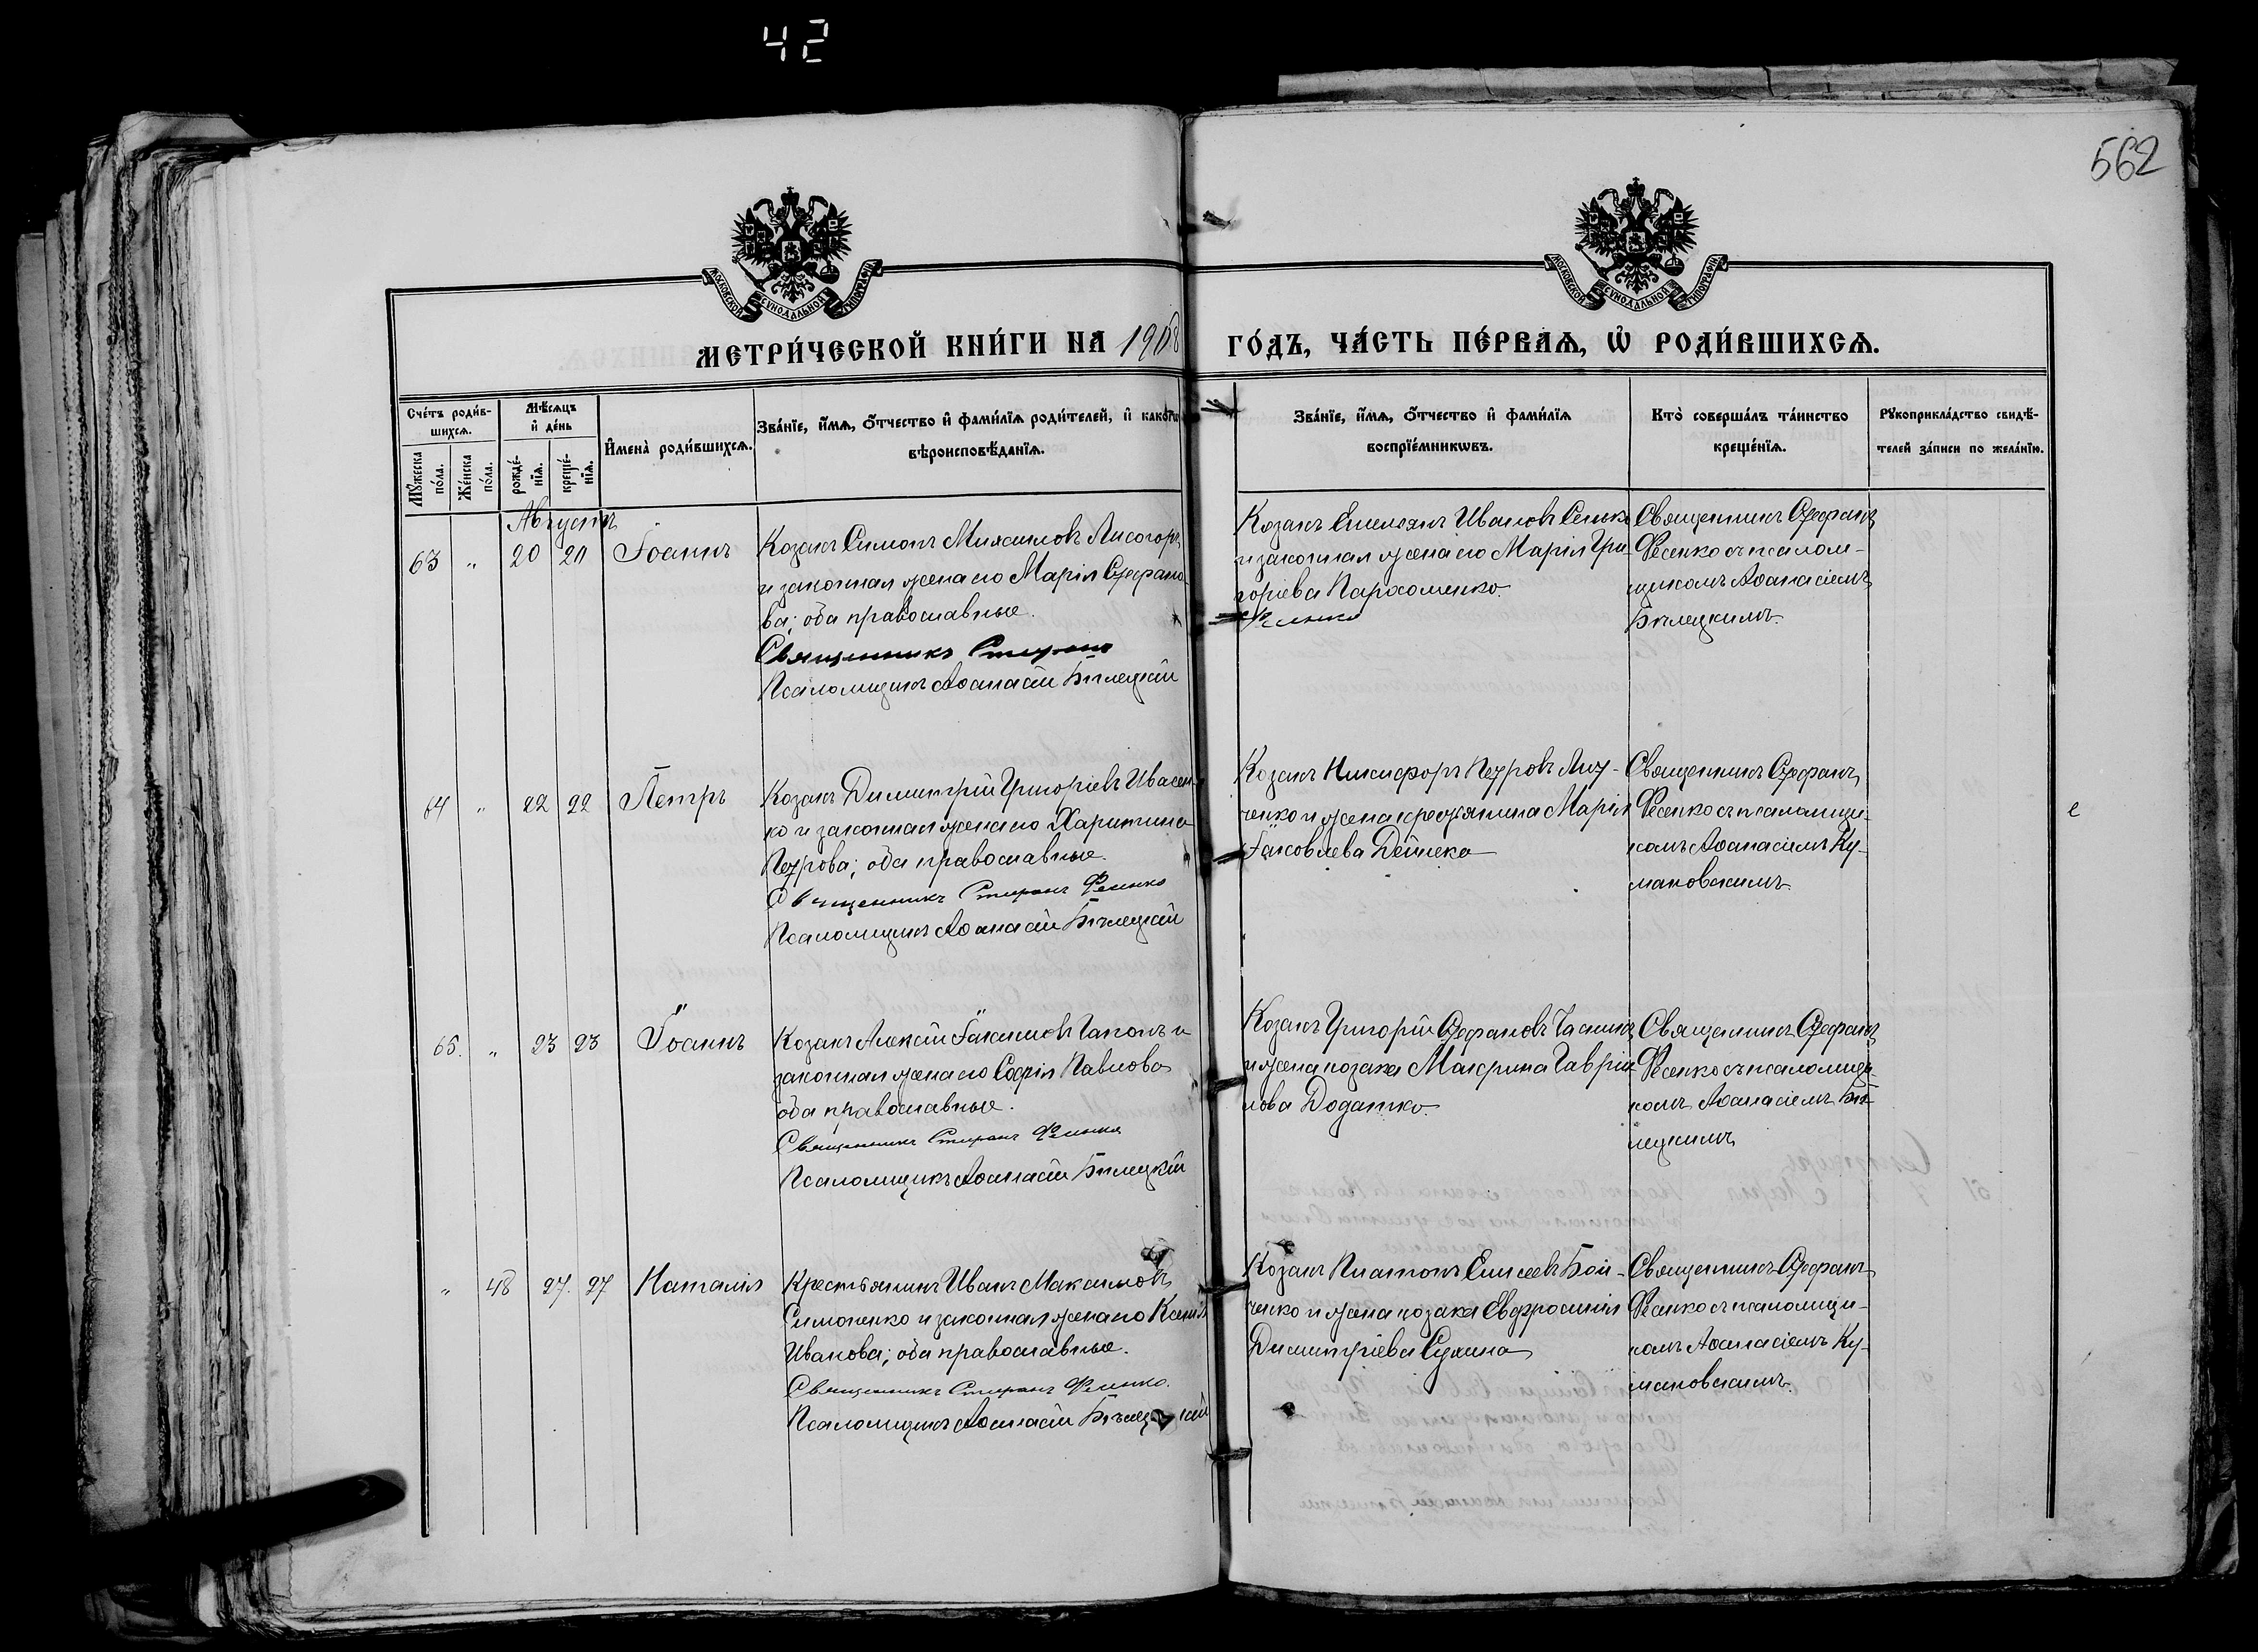 42
562
МОСКОВСКОЙ СѴНОДАЛЬНОЙ ТИПОГРАФІИ
МОСКОВСКОЙ СѴНОДАЛЬНОЙ ТИПОГРАФІИ
МЕТРИ́ЧЕСКОЙ КНИ́ГИ НА 1908 ГО́ДЪ, ЧА́СТЬ ПЕ́РВАѦ, Ѡ҆ РОДИ́ВШИХСѦ.
Сче́тъ роди́в-
шихсѧ.
Мꙋ́жеска
по́ла.
Же́нска
по́ла.
Мѣ́сѧцъ
и҆ де́нь
рожде́-
нїѧ.
креще́-
нїѧ.
И҆мена̀ роди́вшихсѧ.
Зва́нїе, и҆́мѧ, ѻ҆́тчество и҆ фами́лїѧ роди́телей, и҆ како́гѡ
вѣроисповѣ́данїѧ.
Зва́нїе, и҆́мѧ, ѻ҆́тчество и҆ фами́лїѧ
воспрїе́мникѡвъ.
Кто̀ соверша́лъ та́инство
креще́нїѧ.
Рꙋкоприкла́дство свидѣ́-
телей за́писи по жела́нїю.
Августъ
63 " 20 20 Іоаннъ
Козакъ Симонъ Михаиловъ Лисогоръ
и законная жена его Марія Стефано-
ва; оба православные.
Священникъ Стефанъ Фесенко
Псаломщикъ Аѳанасій Бѣлецкій
Козакъ Емеліянъ Ивановъ Сенько
и законная жена его Марія Гри-
горіева Пархоменко
Священникъ Стефанъ
Фесенко съ псалом-
щикомъ Аѳанасіемъ
Бѣлецкимъ.
64 " 22 22 Петръ
Козакъ Димитрій Григоріевъ Ивасен-
ко и законная жена его Харитина
Петрова; оба православные.
Священникъ Стефанъ Фесенко
Псаломщикъ Аѳанасій Бѣлецкій
Козакъ Никифоръ Петровъ
ченко и жена крестьянина Марія
Іаковлева Дейнека
Священникъ Стефанъ
Фесенко съ псаломщи-
комъ Аѳанасіемъ Ку-
маковскимъ.
65. " 23 23 Іоаннъ
Козакъ Алексій Іакимовъ Гапонъ и
законная жена его Софія Павлова
оба православные.
Священникъ Стефанъ Фесенко
Псаломщикъ Аѳанасій Бѣлецкій
Козакъ Григорій Стефановъ
и жена козака Макрина Гаврии-
лова Додатко
Священникъ Стефанъ
Фесенко съ псаломщи-
комъ Аѳанасіемъ Бѣ-
лецкимъ
" 48 27. 27 Наталія
Крестьянинъ Иванъ Максимовъ
Симоненко и законная жена его Ксенія
Иванова; оба православные.
Священникъ Стефанъ Фесенко.
Псаломщикъ Аѳанасій Бѣлецкій
Козакъ Платонъ Елисеевъ Бой-
ченко и жена козака Евфросинія
Димитріева
Священникъ Стефанъ
Фесенко съ псаломщи-
комъ Аѳанасіемъ Ку-
маковскимъ.